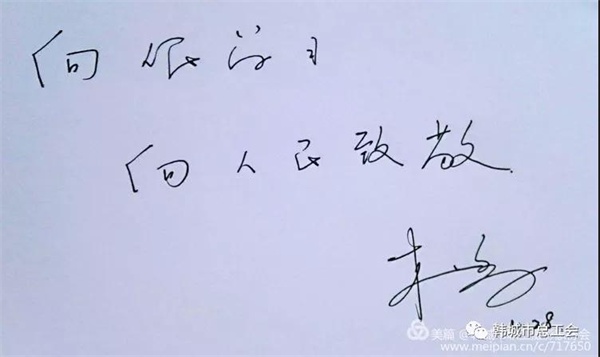 向人民学习
向人民致敬
28
韩城市总工会
美篇
www.meipian.cn/c/717650